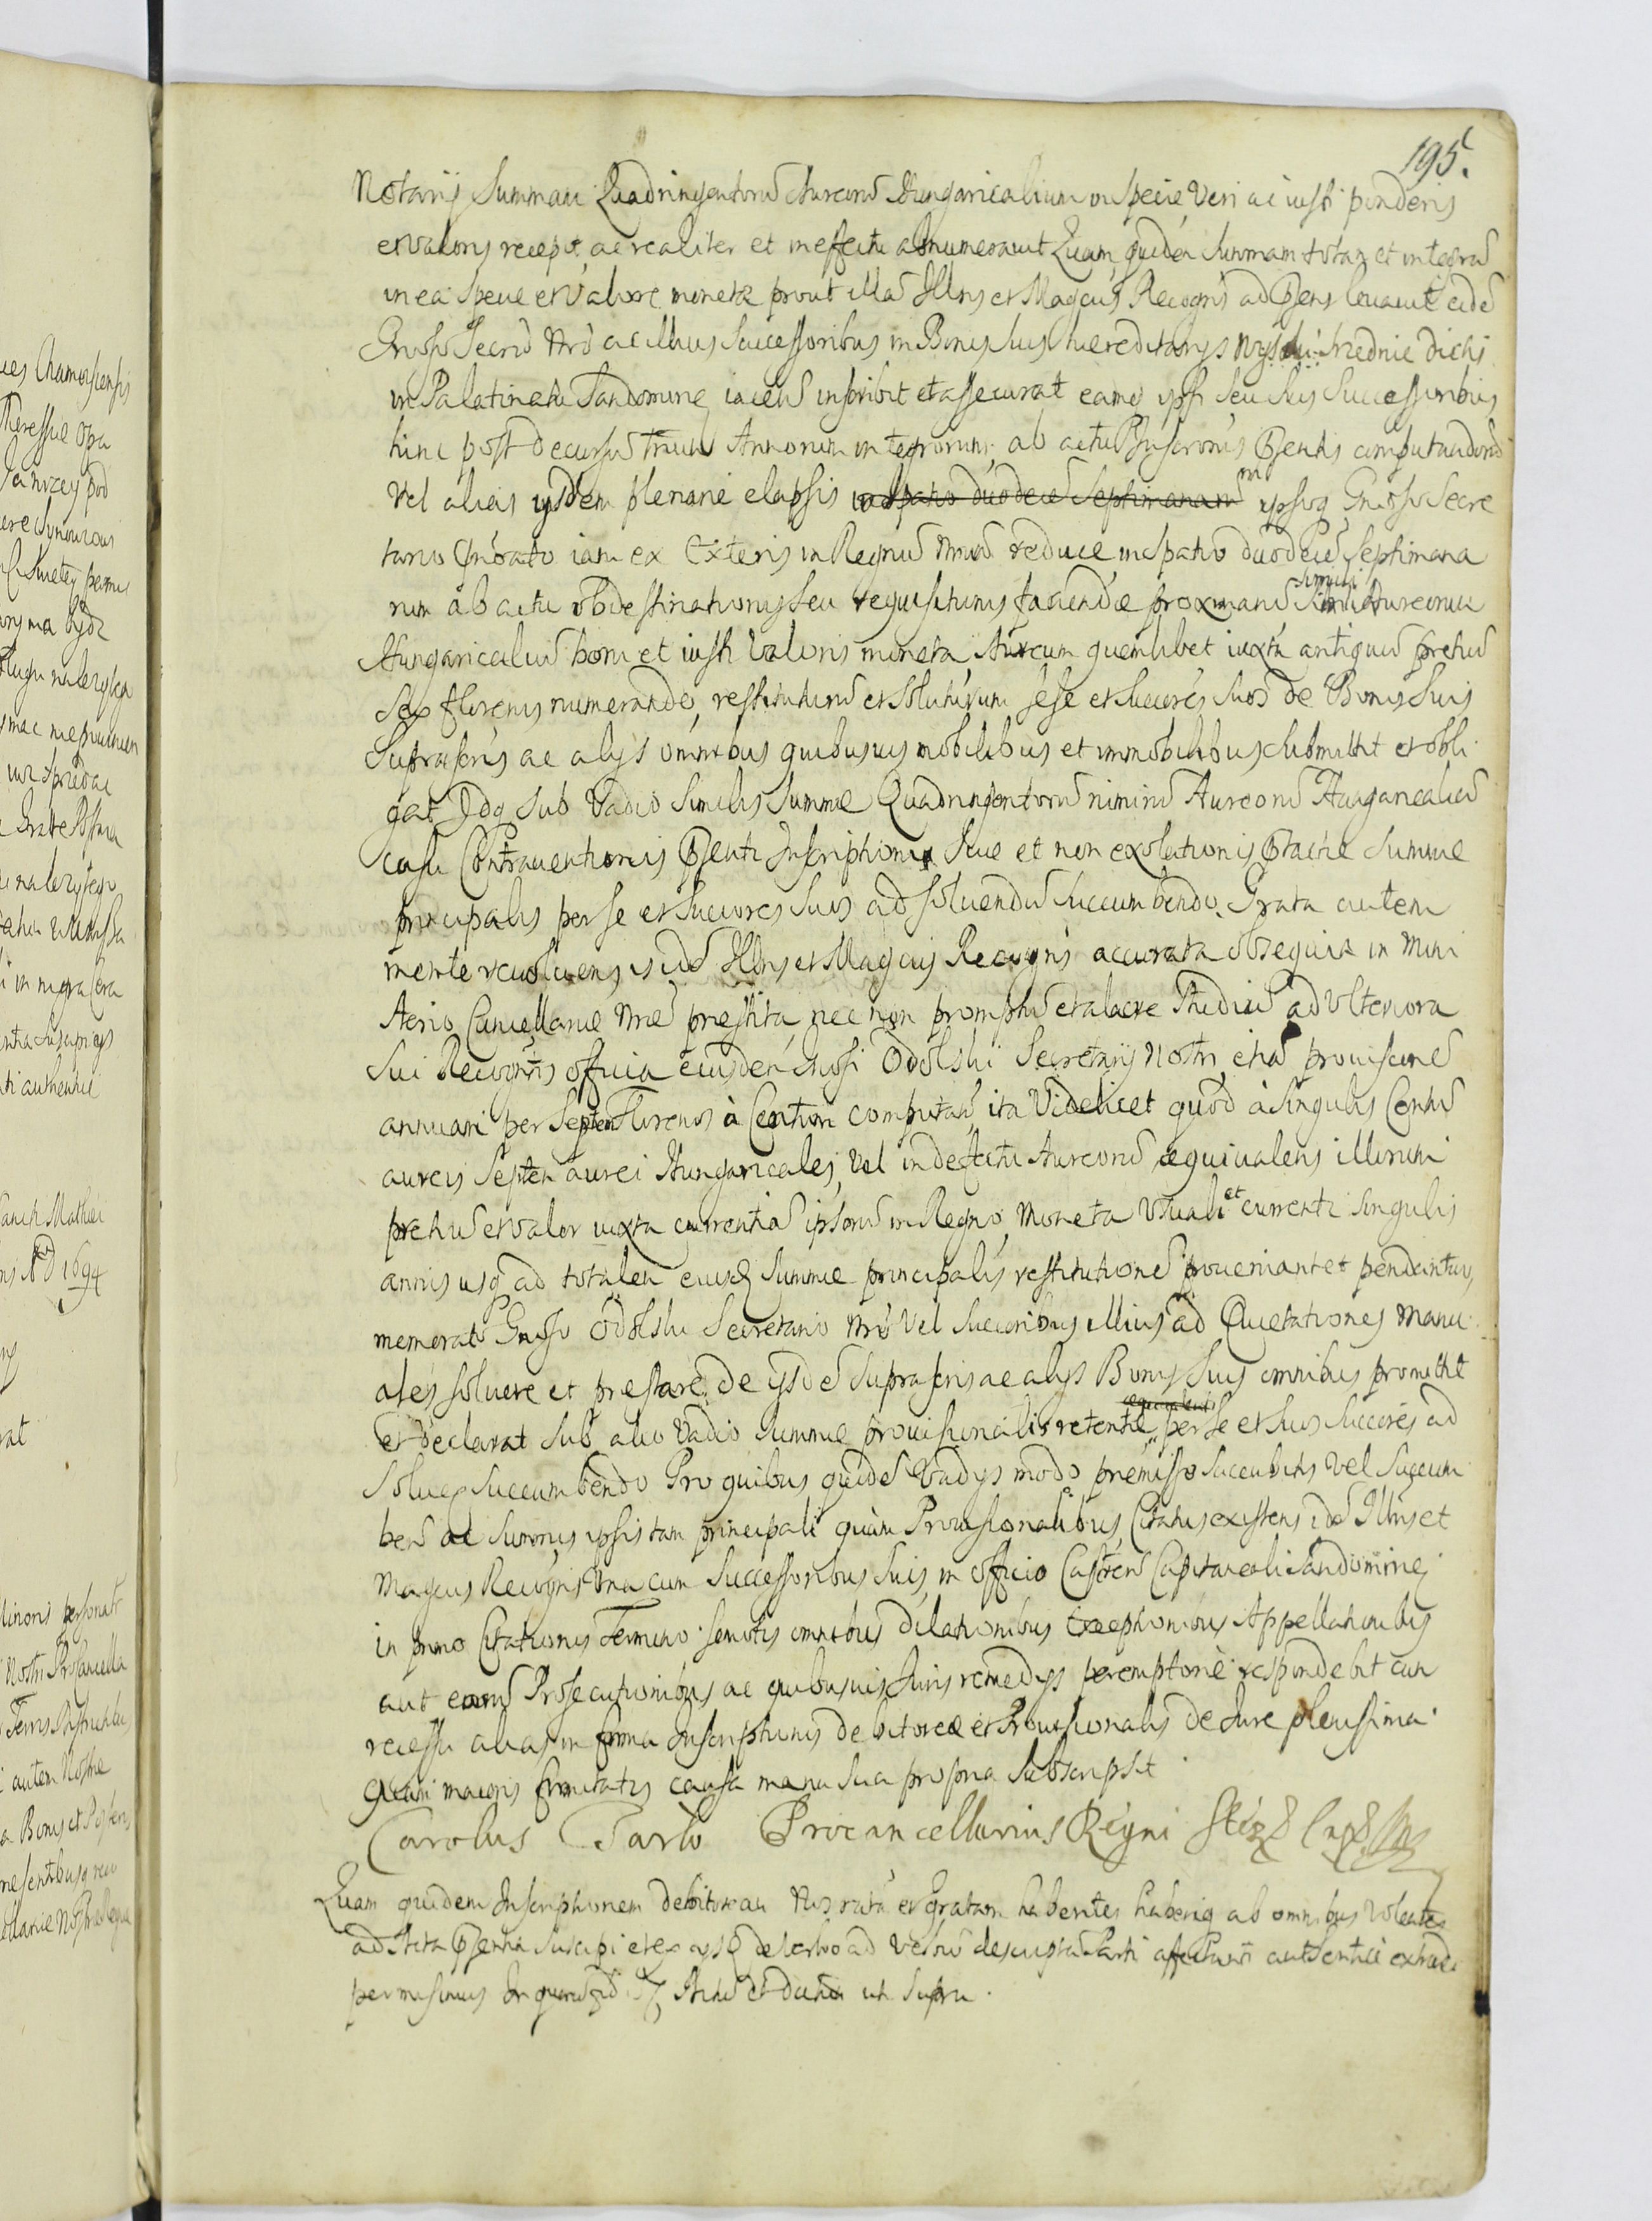 195.
Notarij Summam Quadringentorũ Aureorũ Hungaricalium in specie, Veri ac iusti ponderis
et valoris recepit, ac realiter et in effectu adnumeravit Quam quidem Summam totam et integrã
in ea specie et Valore monetæ prout illã Illris et Magcus Recogns ad Psens levavit eidẽ
Gnoso Secrio Nrõ ac illius Successoribus in Bonis suis hæreditarijs dictis
in Palatinatu Sandomirieñ iaceñ inscribit et assecurat eamq ipsi seu suis Successoribus
hinc post decursũ trium Annorum integrorum, ab actu Inscriptionis Psentis computandorũ
Vel alias ijsdem plenarie elapsis in spatio duodecẽ Septimanarum ipsoq Gnoso Secre
tario iam ex Exteris in Regnũ Nrum reduce in spatio duodecẽ Septimana
rum ab actu obdestinationis seu requisitionis faciendæ proximarũ simili Aureorum
Hungaricaliũ boni et iusti Valoris moneta Aureum quemlibet iuxta antiquũ pretiũ
Sex florenis numerando, restituturũ et soluturum sese et succores suos de Bonis suis
Suprascris ac alijs omnibus quibusvis mobilibus et immobilibus submittit et obli
gat Idq sub Vadio similis Summæ Quadringentorũ nimirũ Aureorũ Hungaricaliũ
casu Contraventionis Psenti Inscriptioni sive et non exolutionis Ptactæ Summæ
principalis per se et succores suos ad solvendũ succumbendo. Grata autem
mente revolvens idẽ Illris et Magcus Recogns accurata obsequia in Mini
sterio Cancellariæ Nræ prestita, nec non promptũ et alacre Studiũ ad Ulteriora
sui Recogntis officia eiusdem Gnosi Odolski Secretarij Nostri etiã provisionẽ
annuam per Septem Florenos à Centum computañ, ita Videlicet quod à singulis Centũ
aureis Septem aurei Hungaricales, Vel in defectu Aureorũ æquivalens illorum
pretiũ et valor iuxta currentiã ipsorũ in Regno, Moneta Usuali et currenti singulis
annis usq ad totalem eiusd Summæ principalis restitutionẽ proveniant et pendantur,
memorato Gnoso Odolski Secretario Nrõ Vel Succoribus illius ad Quietationes Manu
ales solvere et præstare, de ijsdẽ suprascris ac alijs Bonis suis omnibus promittit
et declarat sub alio Vadio Summæ provisionalis retentæ per se et suos succores ad
solveñ succumbendo Pro quibus quidẽ Vadijs modo premisso succubitis Vel succum
beñ ac Summis ipsis tam principali quàm Provisionalibus, Citatus existens idẽ Illris et
Magcus Recogns Una cum Successoribus suis, in officio Castreñ Capitaneali Sandomirieñ
in primo Citationis Termino semotis omnibus dilationibus Exceptionibus Appellationibus
aut earũ Prosecutionibus ac quibusvis Juris remedijs peremptoriè respondebit cum
recessu alias in forma Inscriptionis debitoreæ et Provisionalis de Jure plenissima
quam maioris firmitatis causa manu sua propria subscripsit
Carolus Tarlo Procancellarius Regni
Quam quidem Inscriptionem debitoream Nos ratã et gratam habentes haberiq ab omnibus Volentes
ad Acta Psentia suscipi et ex ijsd de verbo ad verbũ descriptã Parti affectanti authenticè extradi
permisimus In quorũ fid Actũ et datũ ut supra.